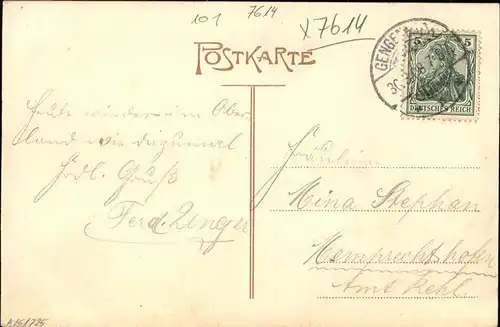 101
7614
x7614
POSTKARTE
GENGE
30
5 5
DEUTSCHES REICH
Heute wieder im Ober
land wie diesmal
Hrdl. Gruß
Ferd. Zenger
Fräulein
Mina Stephan
Memprechtshofen
Amt Kehl.
A151725